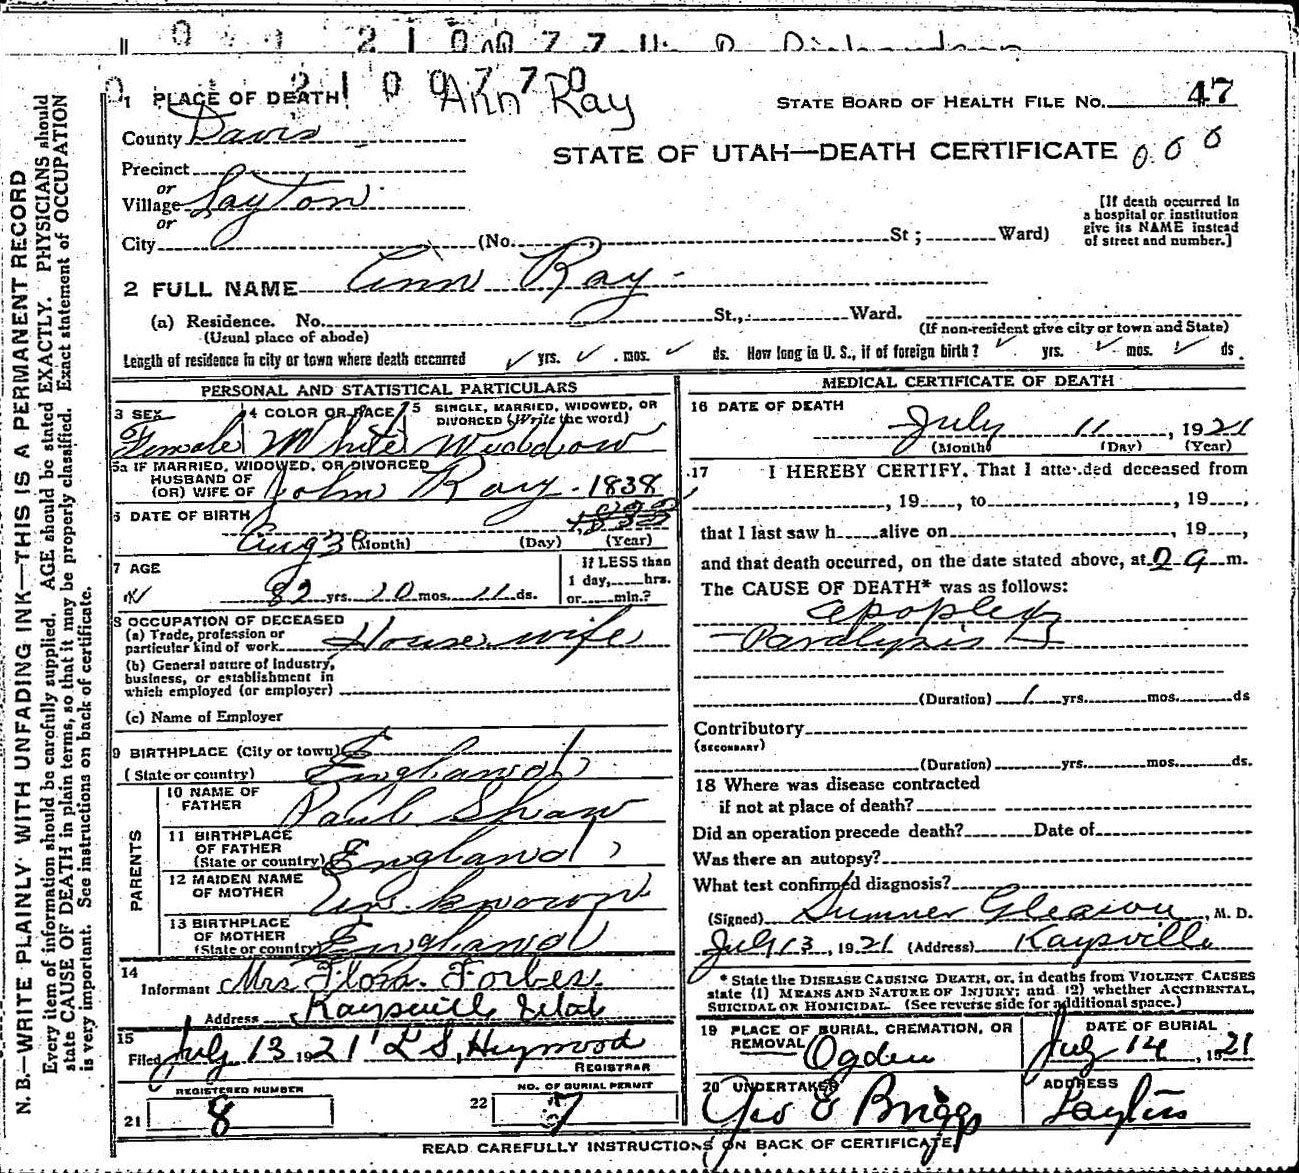 2 1 0 0 7 7
2 1 0 0 7 7 0
Ann Ray
1 PLACE OF DEATH
STATE BOARD OF HEALTH FILE No. 47
County Davis
STATE OF UTAH—DEATH CERTIFICATE
Precinct
or
Village Layton
or
City (No. St; Ward)
[If death occurred in
a hospital or institution
give its NAME instead
of street and number.]
2 FULL NAME Ann Ray
(a) Residence. No. St., Ward.
(Usual place of abode) (If non-resident give city or town and State)
Length of residence in city or town where death occurred yrs. mos. ds. How long in U. S., if of foreign birth? yrs. mos. ds.
PERSONAL AND STATISTICAL PARTICULARS
3 SEX 4 COLOR OR RACE 5 SINGLE, MARRIED, WIDOWED, OR
DIVORCED (Write the word)
Female White Widdow
5a IF MARRIED, WIDOWED, OR DIVORCED
HUSBAND OF
(OR) WIFE OF John Ray 1838
6 DATE OF BIRTH
Aug (Month) (Day) (Year)
7 AGE
82 yrs. 10 mos. 11 ds.
If LESS than
1 day, hrs.
or min.?
8 OCCUPATION OF DECEASED
(a) Trade, profession or
particular kind of work House wife
(b) General nature of Industry,
business, or establishment in
which employed (or employer)
(c) Name of Employer
9 BIRTHPLACE (City or town)
(State or country) England
PARENTS
10 NAME OF
FATHER Paul Shaw
11 BIRTHPLACE
OF FATHER
(State or country) England
12 MAIDEN NAME
OF MOTHER Unknown
13 BIRTHPLACE
OF MOTHER
(State or country) England
14
Informant Mrs Flora Forbes
Address Kaysville Utah
15
Filed July 13 1921 L S, Heywood
REGISTRAR
REGISTERED NUMBER NO. OF BURIAL PERMIT
21 8 22 7
MEDICAL CERTIFICATE OF DEATH
16 DATE OF DEATH
July 11, 1921
(Month) (Day) (Year)
17 I HEREBY CERTIFY. That I attended deceased from
, 19 , to , 19 ,
that I last saw h alive on , 19 ,
and that death occurred, on the date stated above, at m.
The CAUSE OF DEATH* was as follows:
Apoplexy
Paralysis
(Duration) 1 yrs. mos. ds
Contributory
(SECONDARY)
(Duration) yrs. mos. ds.
18 Where was disease contracted
if not at place of death?
Did an operation precede death? Date of
Was there an autopsy?
What test confirmed diagnosis?
(Signed) Sumner Gleason, M. D.
July 13, 1921 (Address) Kaysville
* State the DISEASE CAUSING DEATH, or, in deaths from VIOLENT CAUSES
state (1) MEANS AND NATURE OF INJURY; and (2) whether ACCIDENTAL,
SUICIDAL OR HOMICIDAL. (See reverse side for additional space.)
19 PLACE OF BURIAL, CREMATION, OR
REMOVAL Ogden
DATE OF BURIAL
July 14, 1921
20 UNDERTAKER
Geo E Briggs
ADDRESS
Layton
READ CAREFULLY INSTRUCTIONS ON BACK OF CERTIFICATE
N. B.—WRITE PLAINLY WITH UNFADING INK—THIS IS A PERMANENT RECORD
Every item of information should be carefully supplied. AGE should be stated EXACTLY. PHYSICIANS should
state CAUSE OF DEATH in plain terms, so that it may be properly classified. Exact statement of OCCUPATION
is very important. See instructions on back of certificate.